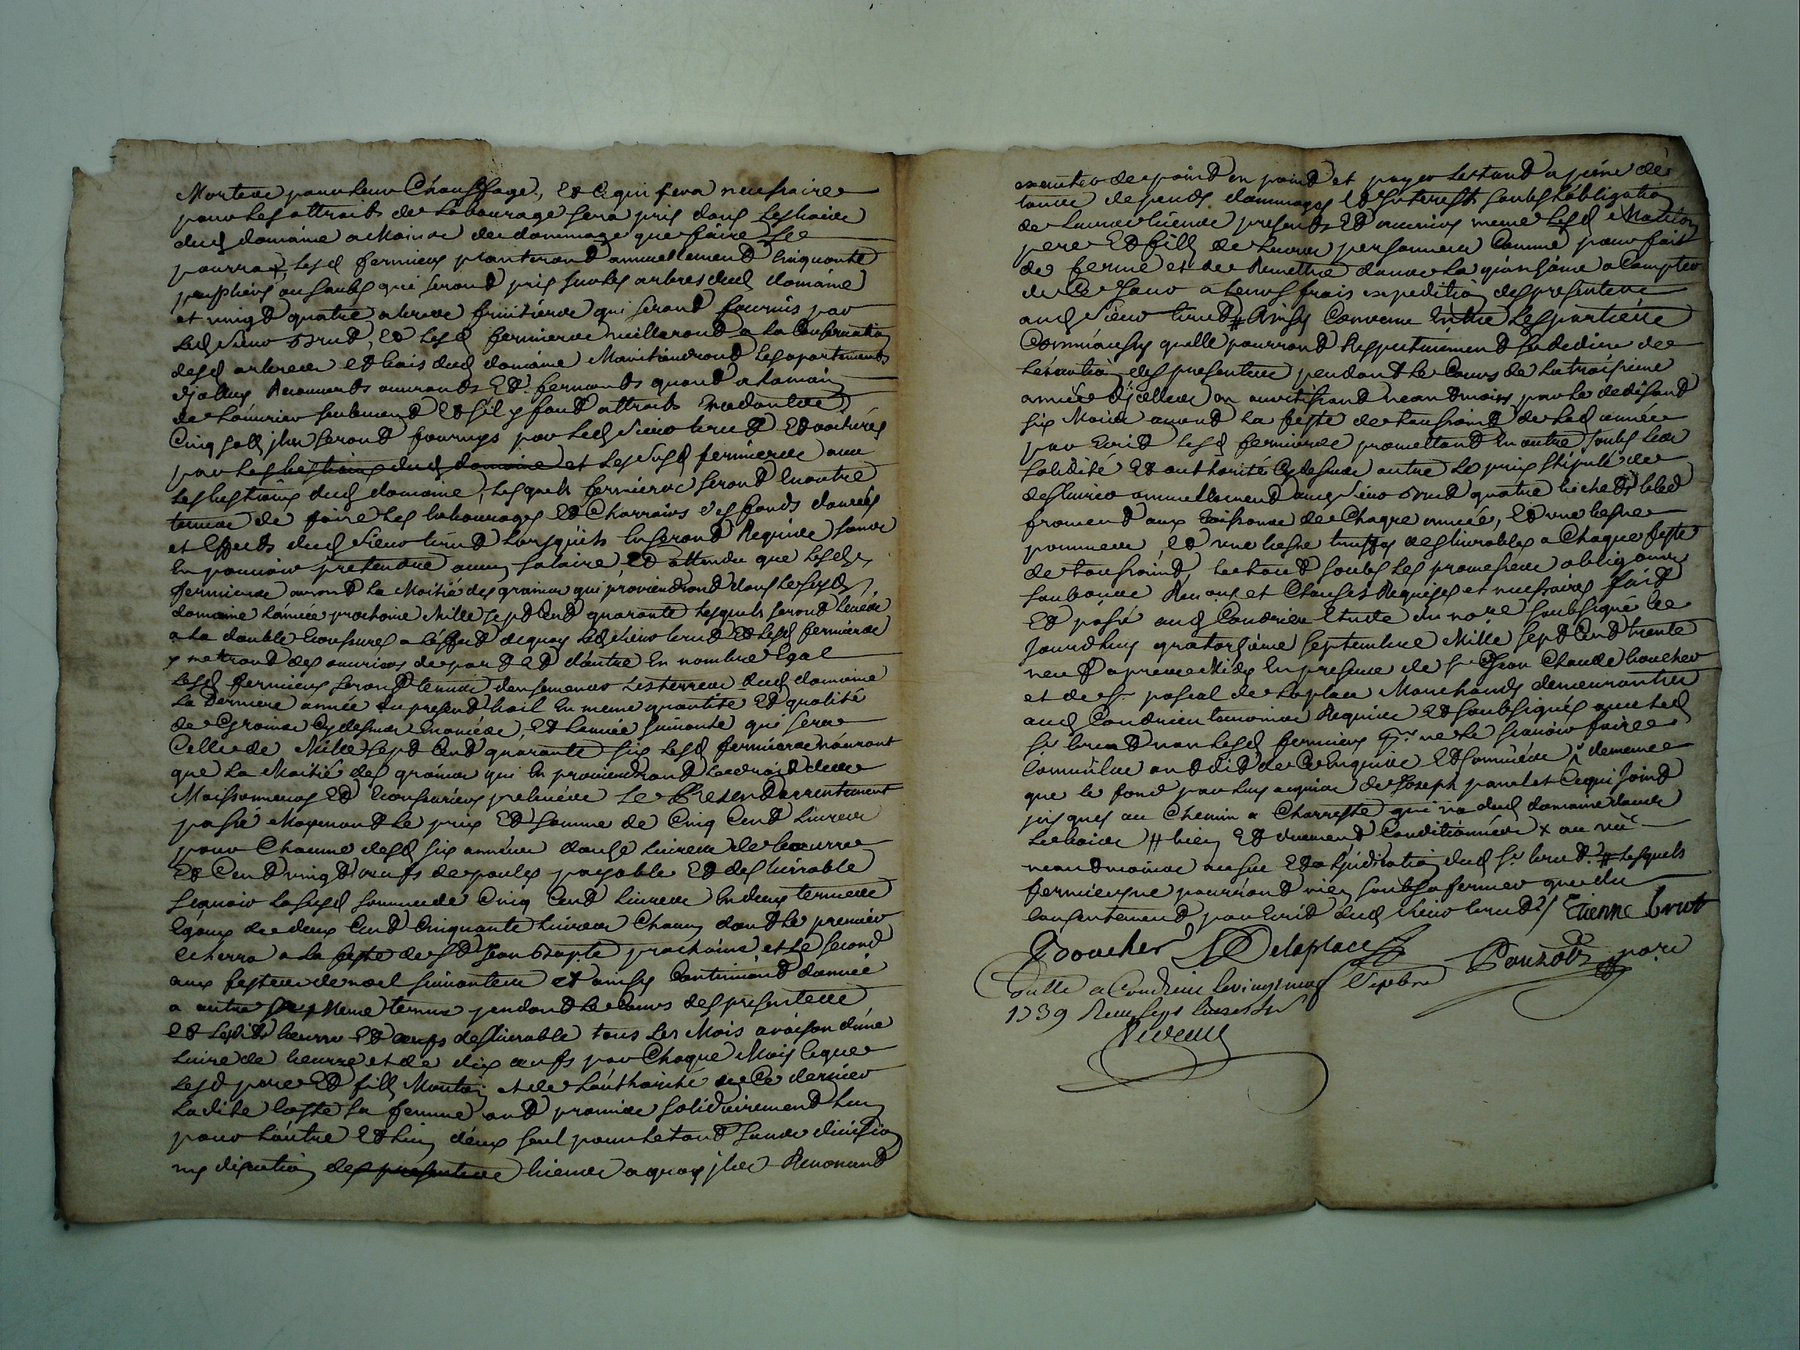 Morte pour leur Chauffage, Et Ce qui sera necessaire
pour Les attraits de Labourage sera pris dans Les bois
dud domaine a Moins de dommage que faire se
pourra, Lesd fermiers planteront annuellement Cinquante
peupliers ou saules qui seront pris sur les arbres dud domaine
et vingt quatre arbres fruitiers qui seront fournis par
Led Sieur brut, Et Lesd fermiers veilleront a La Conservation
desd arbres et bois dud domaine Maintiendront Les apartements
d'jceluy Recouverts ouvrants Et fermants quand a La main
de Louvrier seulement Et s'il y faut attraits
Cinq sols jls seront fournys par Led Sieur brut Et voiturés
par Les bestiaux dud domaine et Les susd fermiers avec
Les bestiaux dud domaine, Lesquels fermiers seront En outre
tenus de faire Les labourages Et Charrois des fonds danrées
et Effects dud Sieur brut Lorsqu'ils En seront Requis sans
En pouvoir pretendre aucun salaire, Et attendu que Lesd
fermiers auront La Moitié des grains qui proviendront dans Le susd
domaine L'année prochaine Mille sept Cent quarante Lesquels seront Levés
a La double a L'effect dequoy Led Sieur brut Et Lesd fermiers
y mettront des ouvriers de part Et d'autre En nombre Egal
Lesd fermiers seront tenus d'ensemencer Les terres dud domaine
La Derniere année du present bail En meme quantité Et qualité
de Grains Cy dessus Enoncés, Et L'année suivante qui sera
Celle de Mille sept Cent quarante six Lesd fermiers n'auront
que La Moitié des grains qui En proviendront Le droit des
Moissonneurs Et Ecosseurs prelevé Le Present arrentement
passé Moyenant Le prix Et somme de Cinq Cent Livres
pour Chacune desd six années douze Livres de beurre
Et Cent vingt œufs de poules payable Et deslivrable
sçavoir La susd somme de Cinq Cent Livres En deux termes
Egaux de deux Cent Cinquante Livres Chacun dont Le premier
Echerra a La feste de St Jean Baptiste prochaine et Le second
aux festes de noel suivantes et ainsy Continüant d'année
a autre Meme termes pendant Le Cours des presentes
Et Lesdits beurre Et œufs deslivrable tous Les Mois a raison d'une
Livre de beurre et de dix œufs par Chaque Mois Ce que
Lesd pere Et fils et de L'authorité de Ce dernier
Ladite sa femme ont promis solidairement L'un
pour L'autre Et L'un d'eux seul pour Le tout sans division
ny discution des presentes biens a quoy jls Renoncent
executer de point en point et payer Le tout a peine de
tous depends dommages Et Interest soubs L'obligation
de Leurs biens presents Et avenirs meme Lesd
pere Et fils de Leurs personnes Comme pour fait
de ferme et de Remettre dans La quinzaine a Compter
de Ce Jour a Leurs frais expedition des presentes
aud Sieur brut # Ainsy Convenu Entre Les parties
Comm'aussy qu'elle pourront Respectivement se dedire de
L'execution des presentes pendant Le Cours de La troisieme
année d'jcelles en avertissant neantmoins par Le dedisant
six Mois avant La feste de toussaint de Lad année
par Ecrit Lesd fermiers promettant En outre soubs Leur
solidité Et authorité Cy dessus outre Le prix stipulé de
deslivrer annuellement aud Sieur brut quatre bichets bled
froment aux moissons de Chaque année, Et une
pommes, Et une deslivrables a Chaque feste
de toussaint, Le tout soubs Les promesses obligations
soubmis Renons et Clauses Requises et necessaires fait
Et passé aud Condrieu Etude du nore soubsigné Ce
Jourdhuy quatorzième septembre Mille sept Cent trente
neuf apres Midy En presence de Sr Jean Claude boucher
et de Sr pascal de Laplace Marchands demeurants
aud Condrieu temoins Requis Et soubsignés avec Led
Sr brut non Lesd fermiers pour ne Le sçavoir faire
Comm'elles ont dit de Ce Enquis Et sommés, demeure
que le fond par Luy acquis de Joseph Ce qui joint
jusques au Chemin a Charrette qui va dud domaine dans
Le bois # bien Et duement Conditionnés x au veü
neantmoins Et dud Sr brut. # Lesquels
fermiers ne pourront rien soubsaffermer que du
Consentement par Ecrit dud Sieur brut / Etienne brut
J boucher Delaplace Ponzot nore
Conllé a Condrieu Le vingt neuf 7bre
1739 Reçu sept Livres